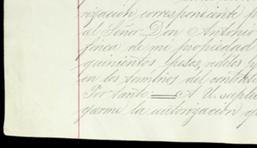 rización correspondiente p
al Señor Don Antonio
finca de mi propiedad
quinientos pesos, reditos
en los términos del contrato
Por tanto = A U. suplic
garme la autorización q